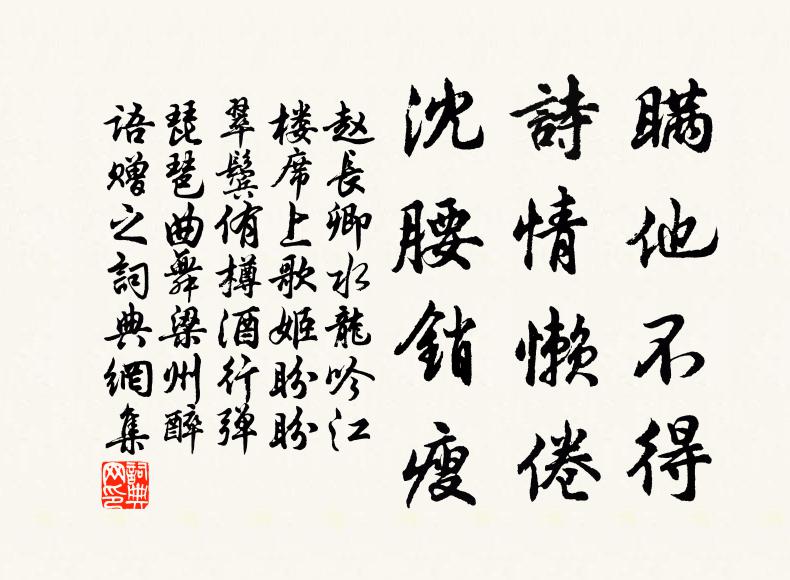 瞞他不得
詩情懒倦
沈腰銷瘦
赵長卿水龍吟江
楼席上歌姬盼盼
翠鬓侑樽酒行弹
琵琶曲舞梁州醉
语赠之詞典網集
詞典网印